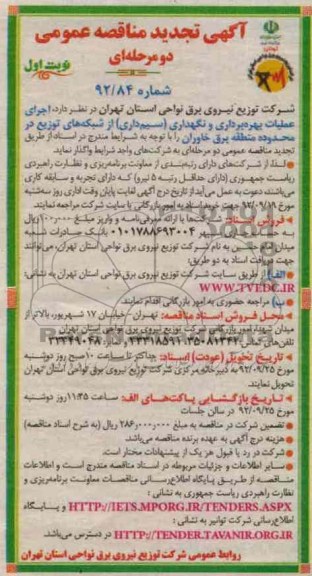 آگهی تجدید مناقصه عمومی
دو مرحله‌ای
نوبت اول
شماره ۹۲/۸۴
شرکت توزیع نیروی برق نواحی استان تهران در نظر دارد، اجرای
عملیات بهره‌برداری و نگهداری (سیم‌داری) از شبکه‌های توزیع در
محدوده منطقه برق خاوران را با توجه به شرایط مندرج در اسناد، از طریق
تجدید مناقصه عمومی دو مرحله‌ای به شرکت‌های واجد شرایط واگذار نماید.
لذا، از شرکت‌های دارای رتبه‌بندی از معاونت برنامه‌ریزی و نظارت راهبردی
ریاست جمهوری (دارای حداقل رتبه ۵ نیرو) که دارای تجربه و سابقه کاری
می‌باشند، دعوت به عمل می‌آید از تاریخ درج آگهی لغایت پایان وقت اداری روز سه‌شنبه
مورخ ۹۲/۰۹/۱۹ جهت خرید اسناد به امور بازرگانی یا سایت شرکت مراجعه نمایند.
فروش اسناد با ارائه معرفی‌نامه و واریز مبلغ ریال
به حساب سپهر ۰۱۰۱۷۸۸۶۹۳۰۰۴ بانک صادرات شعبه
میدان به نام شرکت توزیع نیروی برق نواحی استان تهران، می‌توانند
جهت دریافت اسناد به دو طریق:
الف) از طریق سایت شرکت توزیع نیروی برق نواحی استان تهران به نشانی:
WWW.TVEDC.IR
ب) مراجعه حضوری به امور بازرگانی اقدام نمایند.
محل فروش اسناد مناقصه: تهران - خیابان ۱۷ شهریور، بالاتر از
میدان شهدا، امور بازرگانی شرکت توزیع نیروی برق نواحی استان تهران
تلفن‌های تماس: ۳۵۰۸۱۳۴۲، ۳۳۳۱۸۵۹۱ و نمابر: ۳۳۳۴۹۰۴۸
تاریخ تحویل (عودت) اسناد: حداکثر تا ساعت ۱۰ صبح روز دوشنبه
مورخ ۹۲/۰۹/۲۵ به دبیرخانه مرکزی شرکت توزیع نیروی برق نواحی استان تهران
تحویل نمایند.
تاریخ بازگشایی پاکت‌های الف: ساعت ۱۱:۴۵ روز دوشنبه
مورخ ۹۲/۰۹/۲۵ در سالن جلسات
تضمین شرکت در مناقصه به مبلغ ۲۸۶،۰۰۰،۰۰۰ ریال (به شرح اسناد مناقصه)
هزینه درج آگهی به عهده برنده مناقصه می‌باشد.
شرکت در رد یا قبول هر یک از پیشنهادات مختار است.
سایر اطلاعات و جزئیات مربوطه در اسناد مناقصه مندرج است و اطلاعات
مناقصه از طریق پایگاه اطلاع‌رسانی مناقصات معاونت برنامه‌ریزی و
نظارت راهبردی ریاست جمهوری به نشانی:
HTTP://IETS.MPORG.IR/TENDERS.ASPX و پایگاه
اطلاع‌رسانی شرکت توانیر به نشانی:
HTTP://TENDER.TAVANIR.ORG.IR در دسترس می‌باشد.
روابط عمومی شرکت توزیع نیروی برق نواحی استان تهران